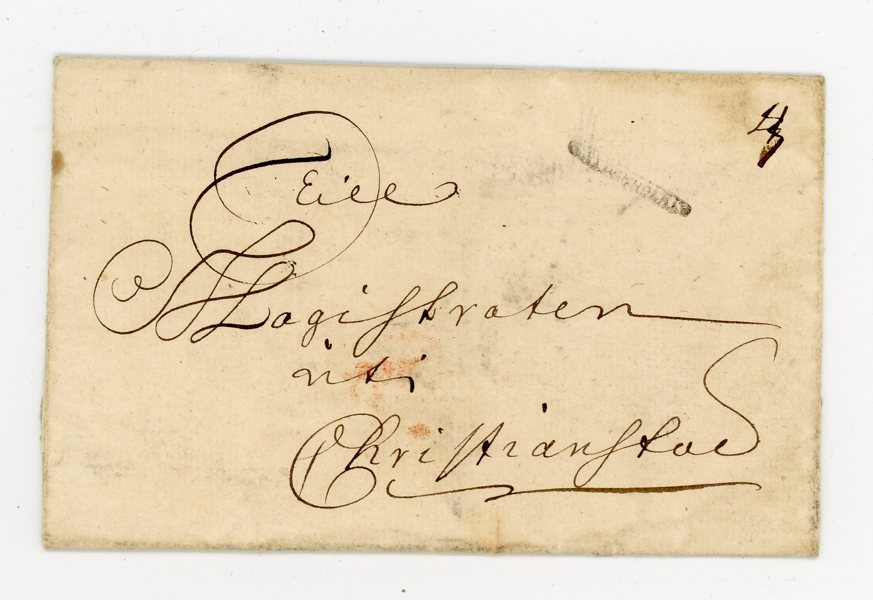 Till
Magistraten
uti
Christianstad